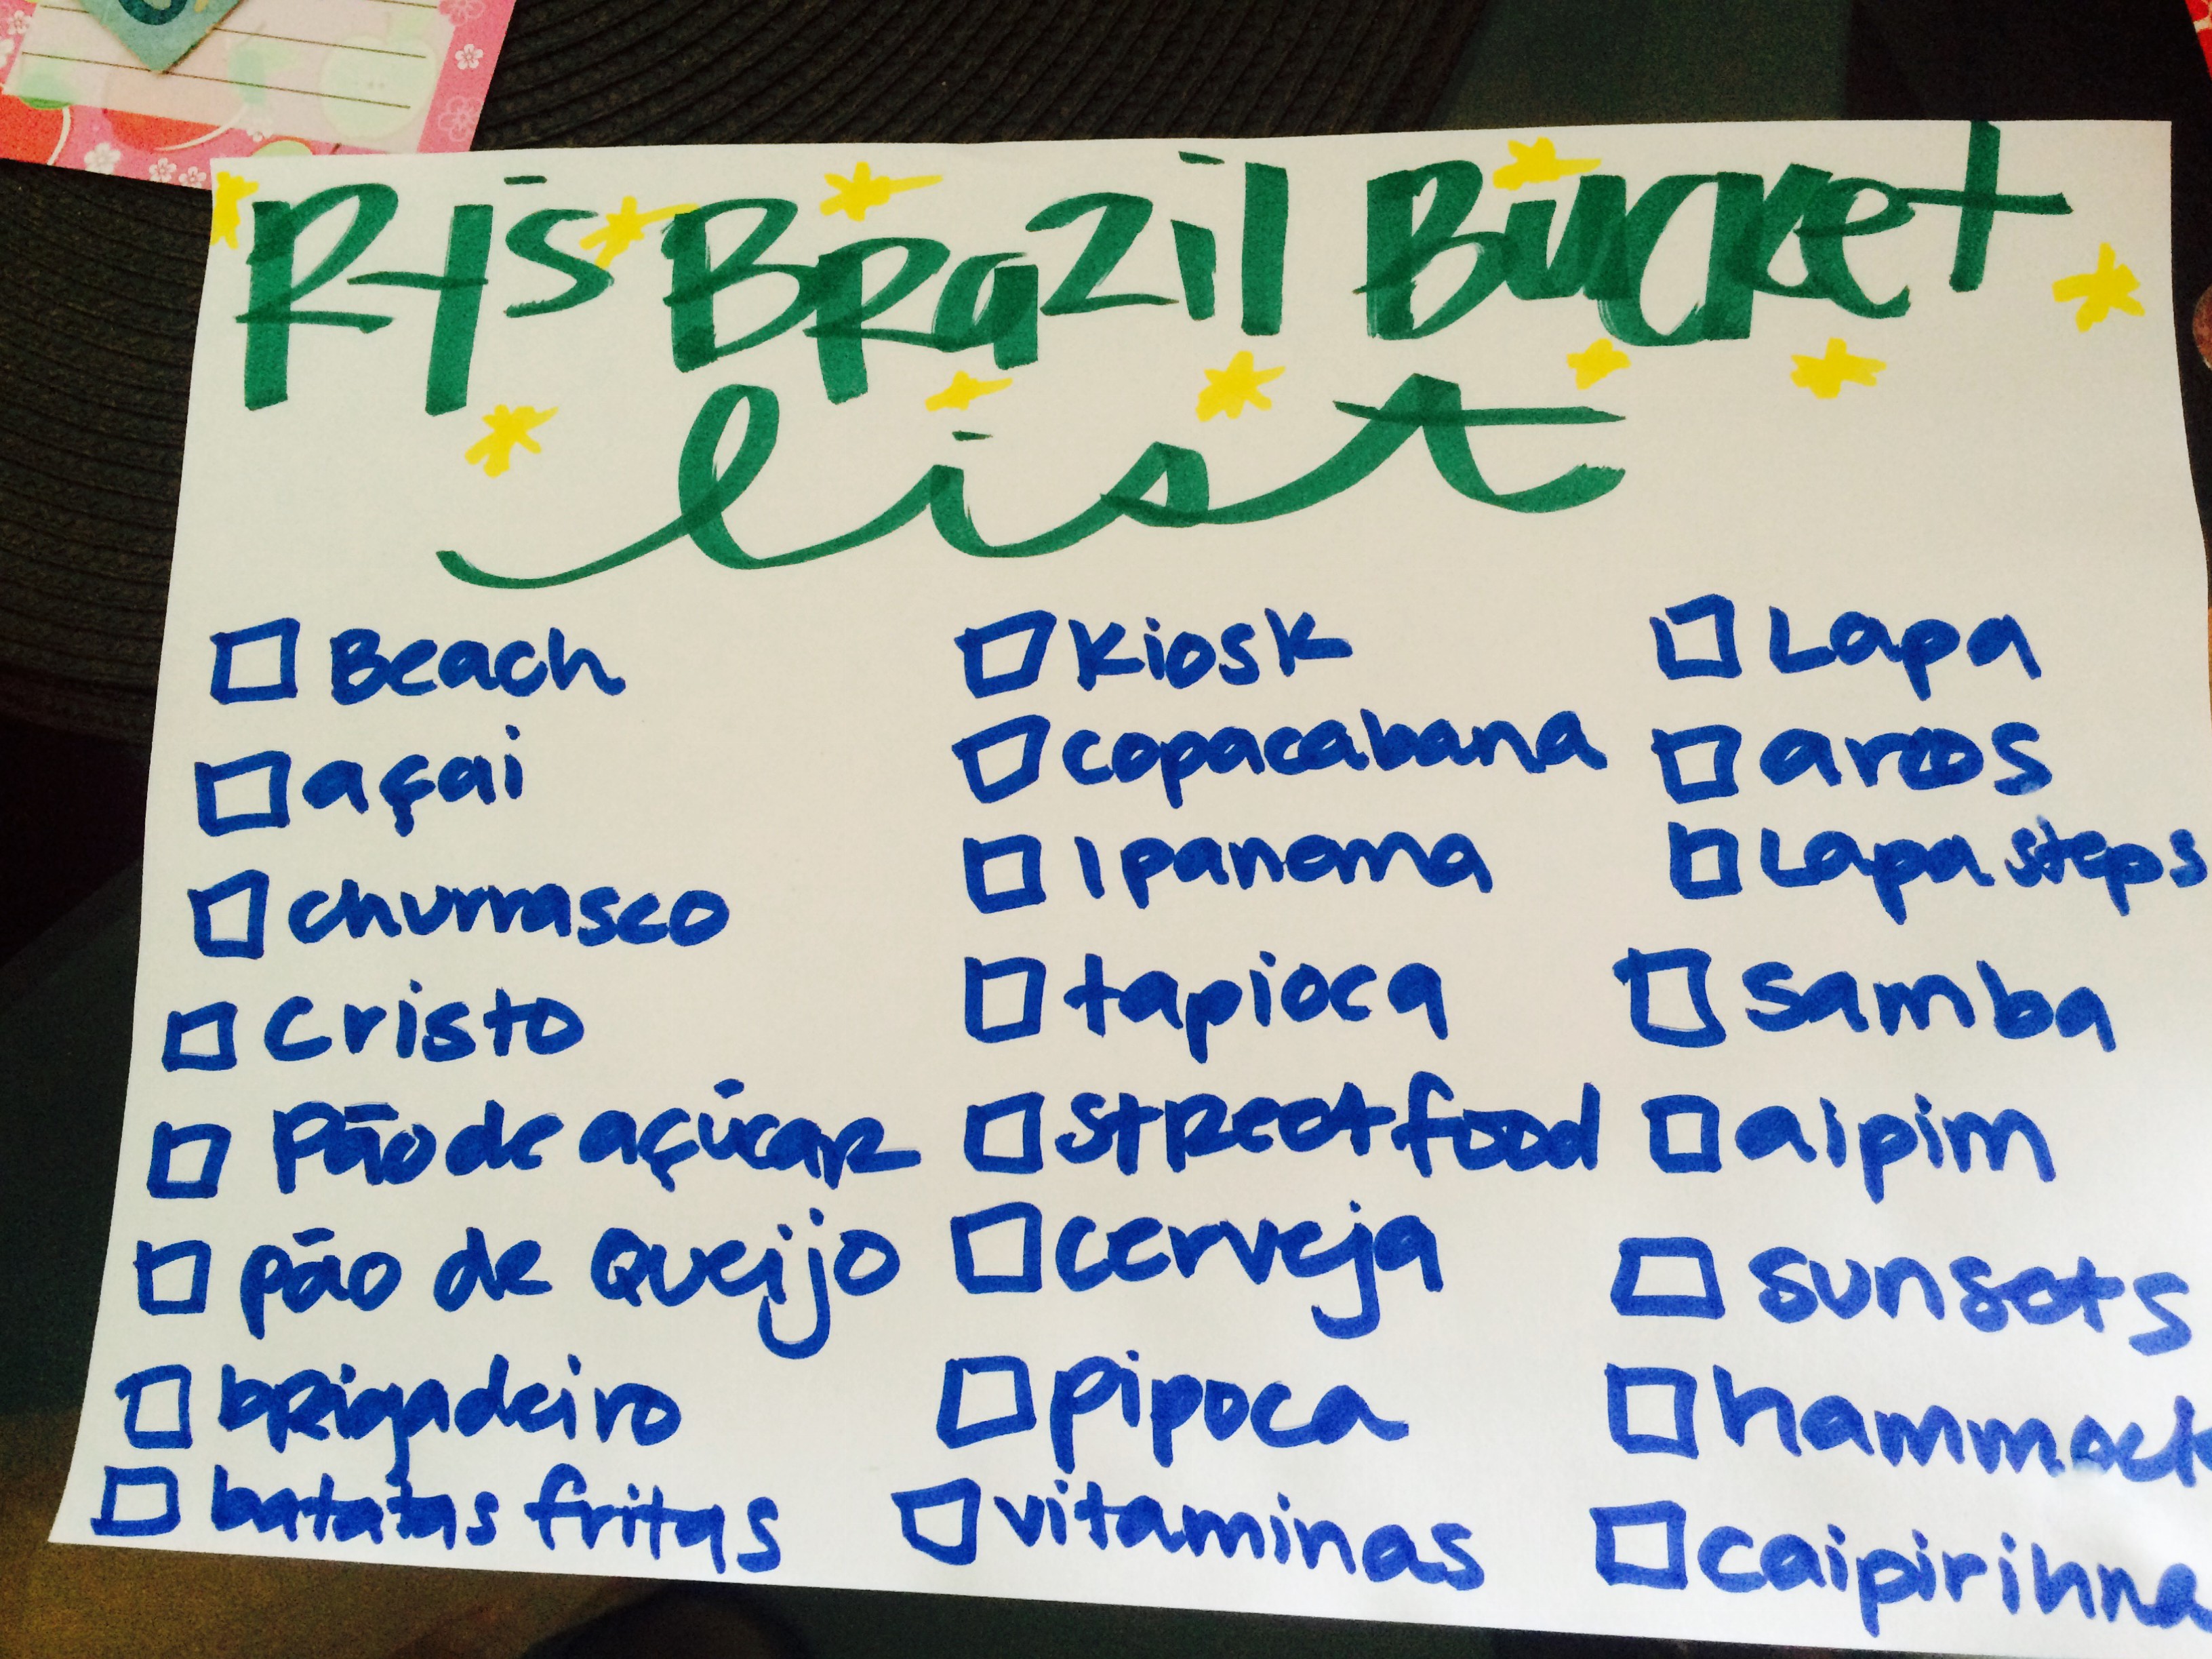 RJ's Brazil Bucket
list
Beach
açai
churrasco
Cristo
Pão de açúcar
pão de Queijo
brigadeiro
batatas fritas
Kiosk
copacabana
Ipanema
tapioca
street food
cerveja
pipoca
vitaminas
Lapa
arcos
Lapa steps
samba
aipim
sunsets
hammock
caipirihna